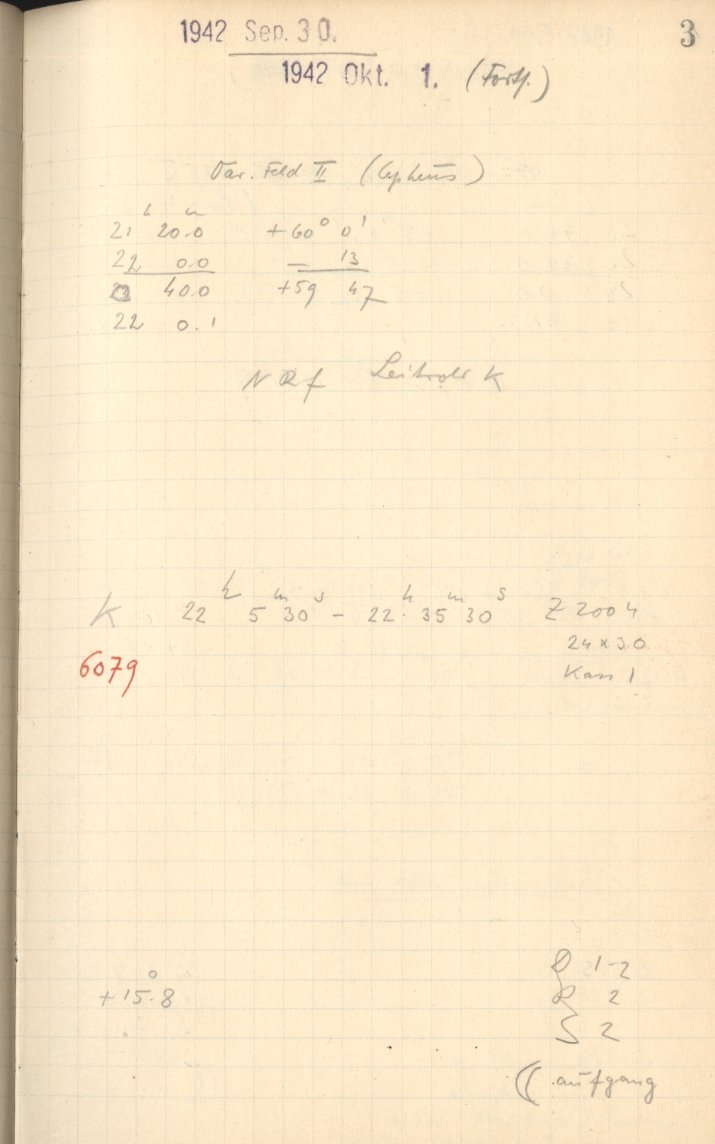 3
1942 Sep. 30.
1942 Okt. 1. (Forts.)
Var. Feld II (Cepheus)
21 h 20.0 m +60° 0'
22 0.0 – 13
40.0 +59 47
22 0.1
N Rf Leitrohr K
K 22 h 5 m 30 s – 22 h 35 m 30 s Z 2004
24 x 30
6079 Kass 1
1-2
+15.°8 R 2
S 2
aufgang